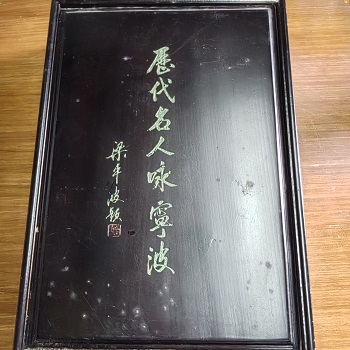 歷代名人咏寧波
梁平波題